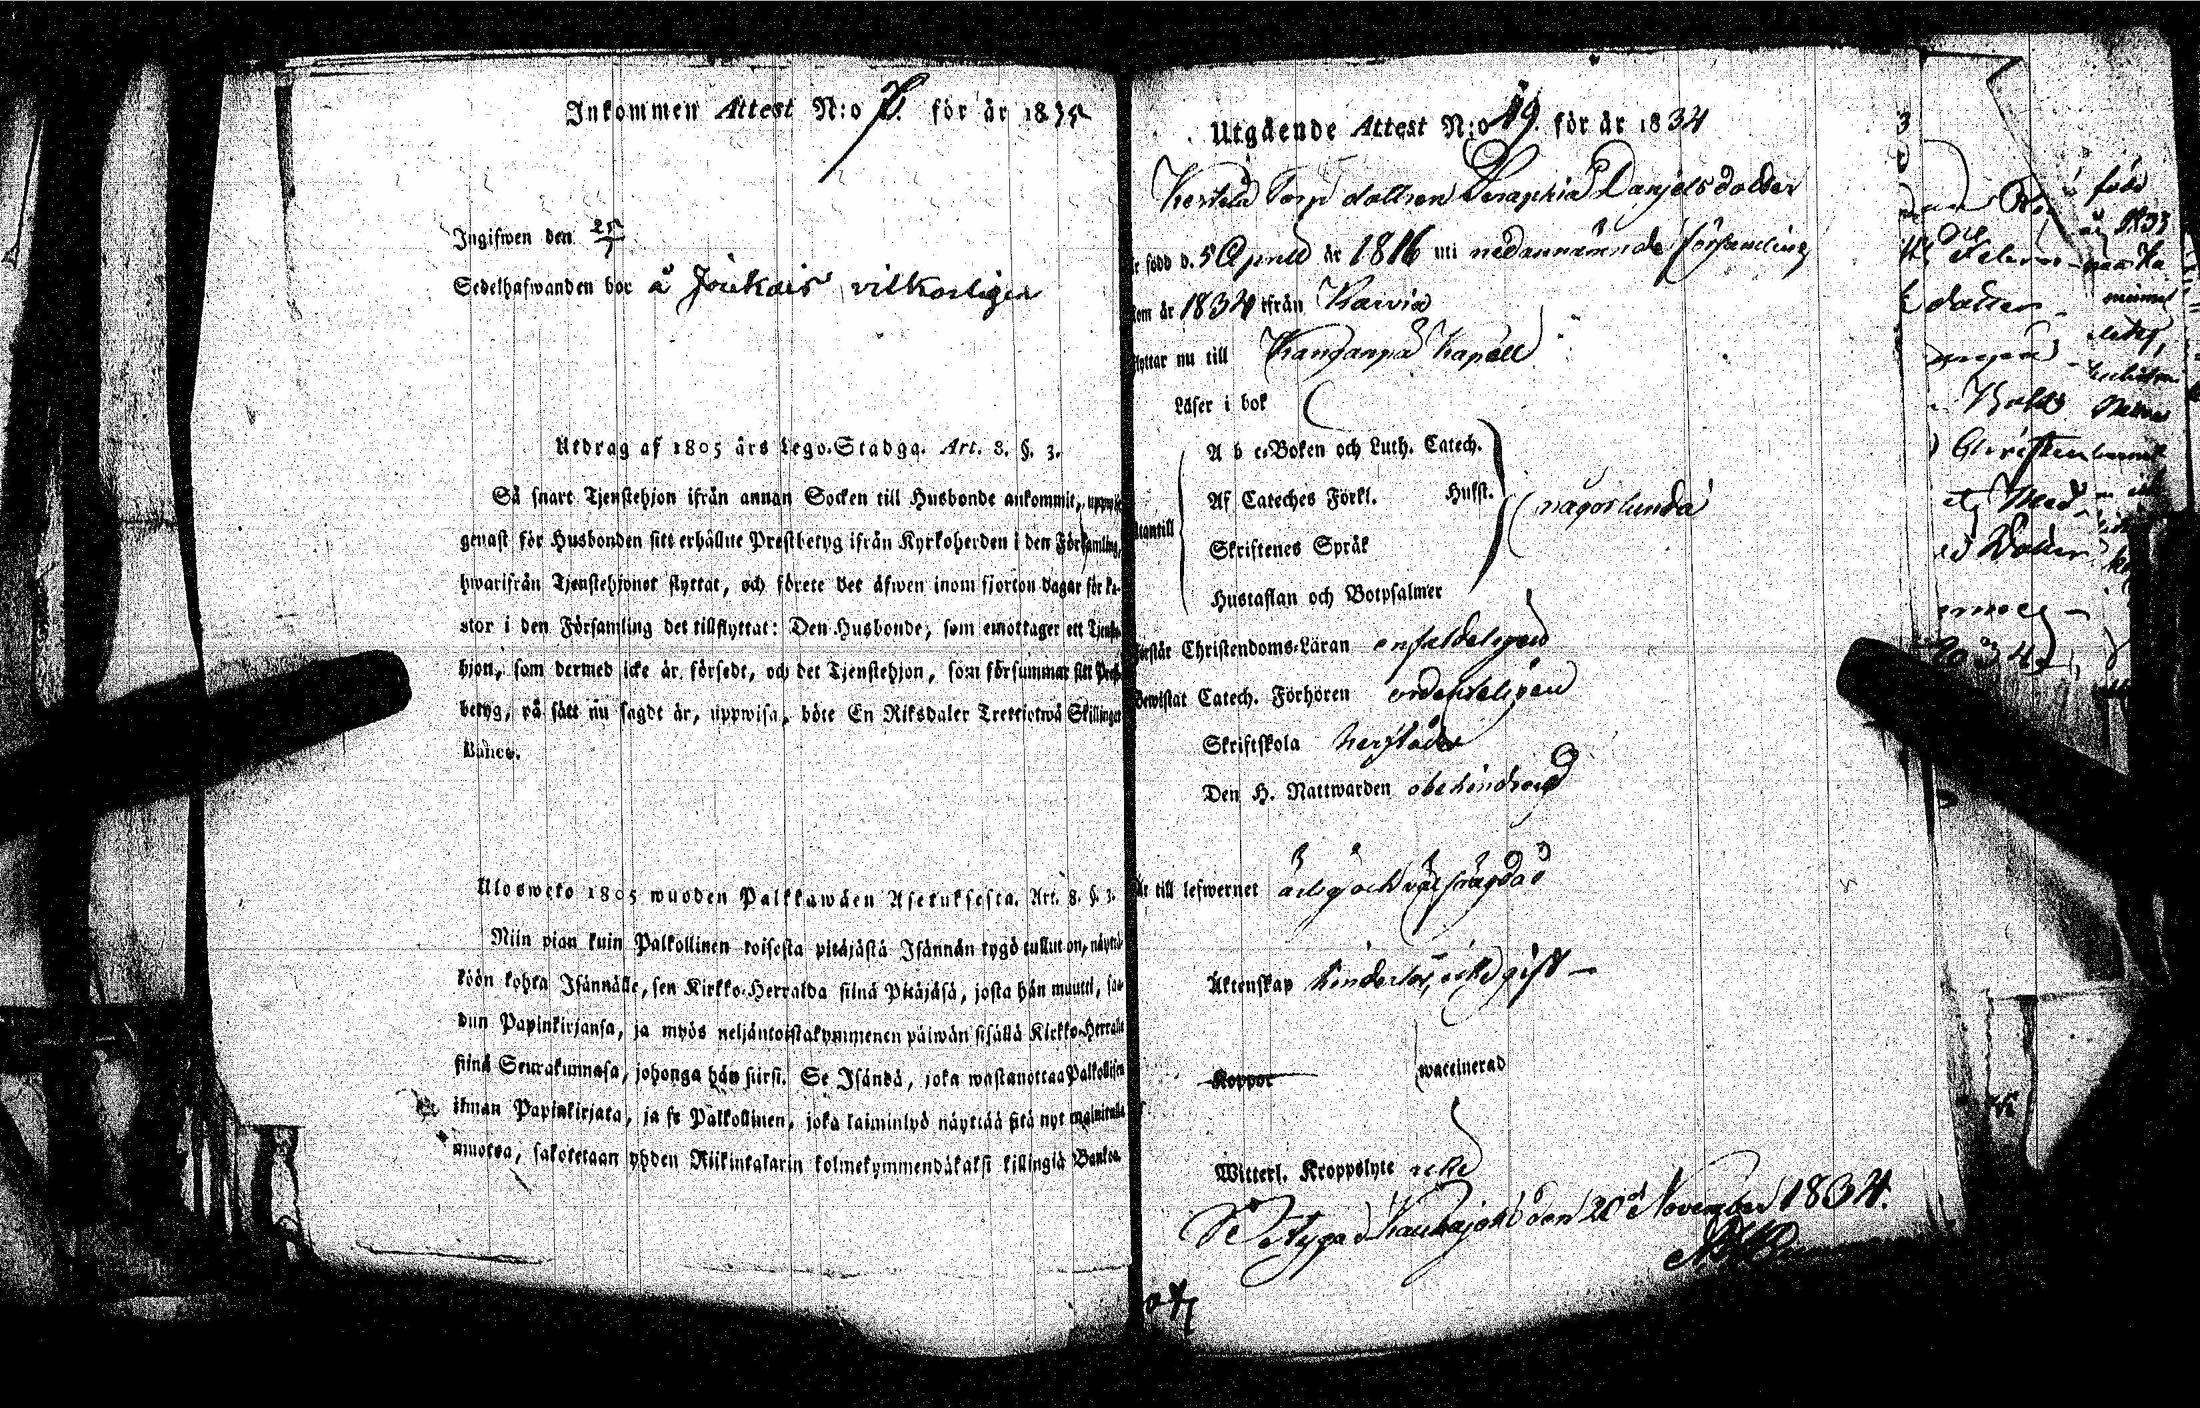 Inkommen Attest N:o 7. för år 1835
Ingifwen den 25/1
Sedelhafwanden bor å Joukais vilkorligen
Utdrag af 1805 års Lego-Stadga. Art. 8. §. 3.
Så snart Tjenstehjon ifrån annan Socken till Husbonde ankommit, uppwise
genast för Husbonden sitt erhållne Prestbetyg ifrån Kyrkoherden i den Församling,
hwarifrån Tjenstehjonet flyttat, och förete det äfwen inom fjorton dagar för Pa-
stor i den Församling det tillflyttat: Den Husbonde, som emottager ett Tjenste-
hjon, som dermed icke är försedt, och det Tjenstehjon, som försummar sitt Prest-
betyg, på sätt nu sagdt är, uppwisa, böte En Riksdaler Trettiotwå Skillingar
Banco.
Ulosweto 1805 wuoden Palkkawäen Asetuksesta. Art. 8. §. 3.
Niin pian kuin Palkollinen toisesta pitäjästä Isännän tygö tullut on, näyttä-
köön kohta Isännälle, sen Kirkko-Herralda siinä Pitäjäsä, josta hän muutti, saa-
dun Papinkirjansa, ja myös neljäntoistakymmenen päiwän sisällä Kirkko-Herralle
siinä Seurakunnasa, johonga hän siirsi. Se Isändä, joka wastanottaa Palkollisen
ilman Papinkirjata, ja se Palkollinen, joka laiminlyö näyttää sitä nyt mainitulla
muotoa, sakotetaan yhden Riikintalarin kolmekymmendäkaksi killingiä Bankoa.
Utgående Attest N:o 49. för år 1834
Torp dottren Seraphia Danjelsdotter
är född d. 5 April år 1816 uti nedannämnde församling
kom år 1834 ifrån Karvia
flyttar nu till Kanganpä Kapell
Läser i bok
utantill
A b c-Boken och Luth. Catech.
Af Cateches Förkl. Hufst.
någorlunda
Skriftenes Språk
Hustaflan och Botpsalmer
Förstår Christendoms-Läran enfaldeligen
Bewistat Catech. Förhören ordenteligen
Skriftskola
Den H. Nattwarden obehindrad
Är till lefwernet ärlig och väl frägdad
Äktenskap hinderlös, icke gift —
Koppor waccinerad
Witterl. Kroppslyte icke
Betygad Kauhajoki den 20 November 1834.